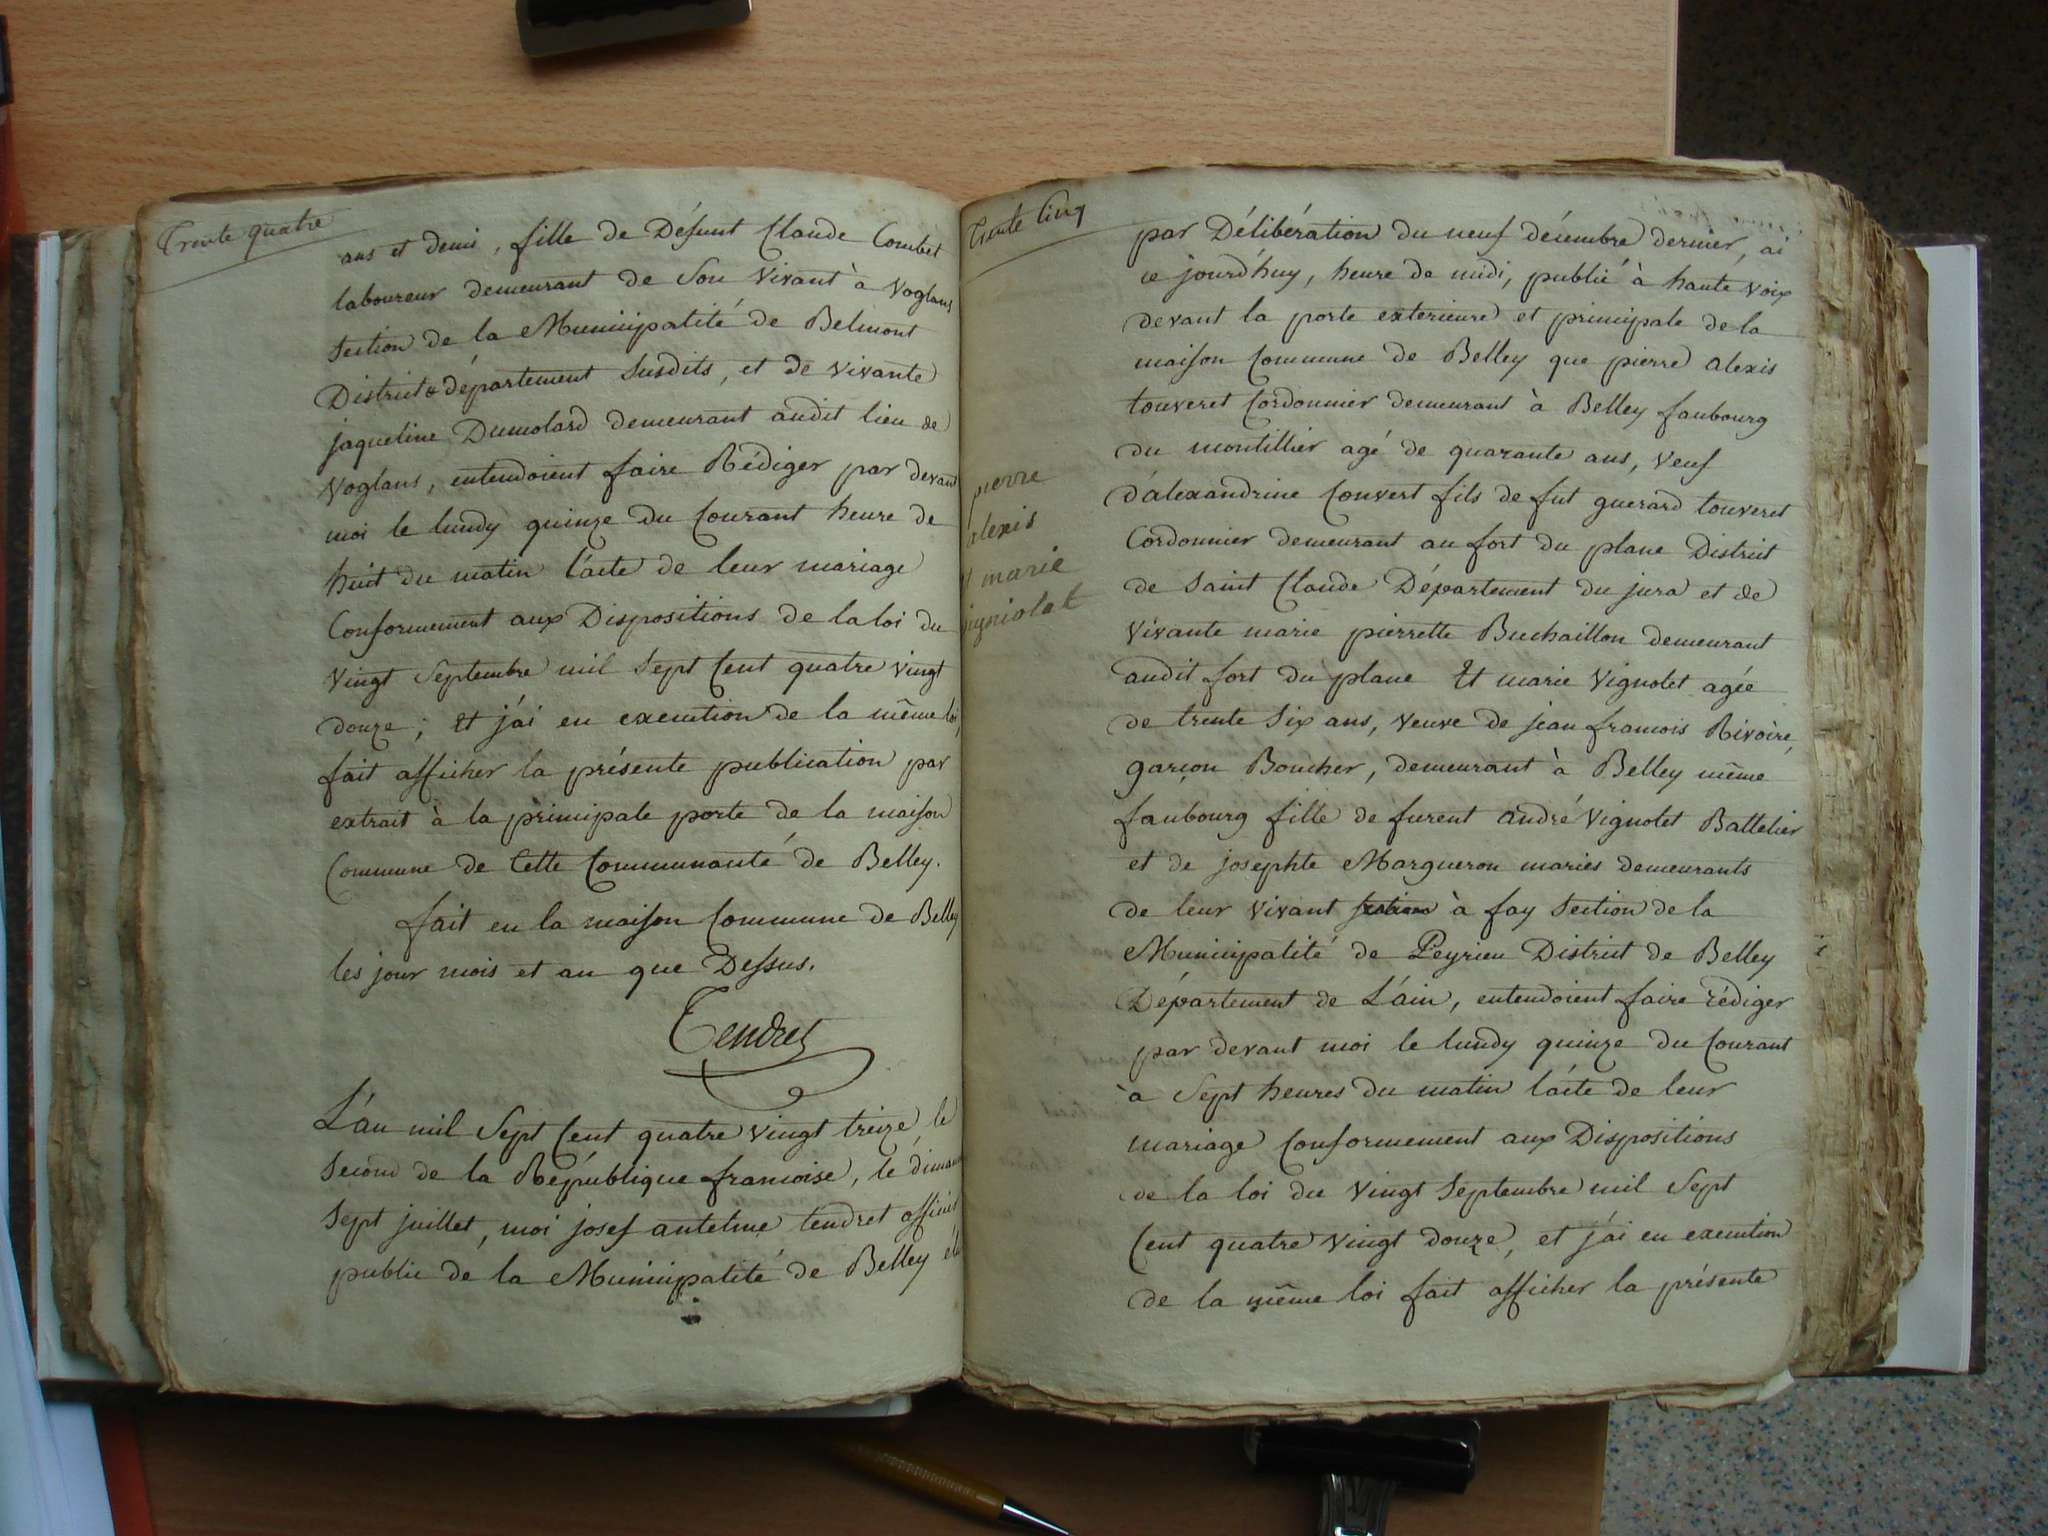 Trente quatre
ans et demi, fille de Défunt Claude Combet
laboureur demeurant de Son Vivant à Voglans
Section de la Municipalité de Belmont
District & département Susdits, et de vivante
jaqueline Dumolard demeurant audit lieu de
Voglans, entendoient faire Rédiger par devant
moi le lundy quinze du Courant heure de
huit du matin l'acte de leur mariage
Conformement aux Dispositions de la loi du
Vingt Septembre mil Sept Cent quatre Vingt
douze; Et j'ai en execution de la même loi,
fait afficher la présente publication par
extrait à la principale porte de la maison
Commune de Cette Communauté de Belley.
fait en la maison Commune de Belley
les jour mois et an que Dessus.
Tendret
L'an mil Sept Cent quatre Vingt treize le
Second de la République francoise, le diman
Sept juillet, moi josef antelme tendret officier
public de la Municipalité de Belley élu
Trente Cinq
pierre
alexis
marie
vigniolet
par Délibération du neuf décembre dernier, ai
ce jourd'huy, heure de midi, publié à haute voix
devant la porte exterieure et principale de la
maison Commune de Belley que pierre alexis
touveret Cordonnier demeurant à Belley faubourg
du montillier agé de quarante ans, Veuf
d'alexandrine Convert fils de fut guerard touveret
Cordonnier demeurant au fort du plane District
de Saint Claude Département du jura et de
Vivante marie pierrette Buchaillon demeurant
audit fort du plane Et marie Vignolet agée
de trente Six ans, veuve de jean francois Rivoire,
garçon Boucher, demeurant à Belley même
faubourg fille de furent andré Vignolet Battelier
et de josephte Margueron mariés demeurants
de leur vivant à fay Section de la
Municipalité de Peyrieu District de Belley
Département de L'ain, entendoient faire rédiger
par devant moi le lundy quinze du Courant
à Sept heures du matin l'acte de leur
mariage Conformement aux Dispositions
de la loi du Vingt Septembre mil Sept
Cent quatre Vingt douze, et j'ai en execution
de la même loi fait afficher la présente